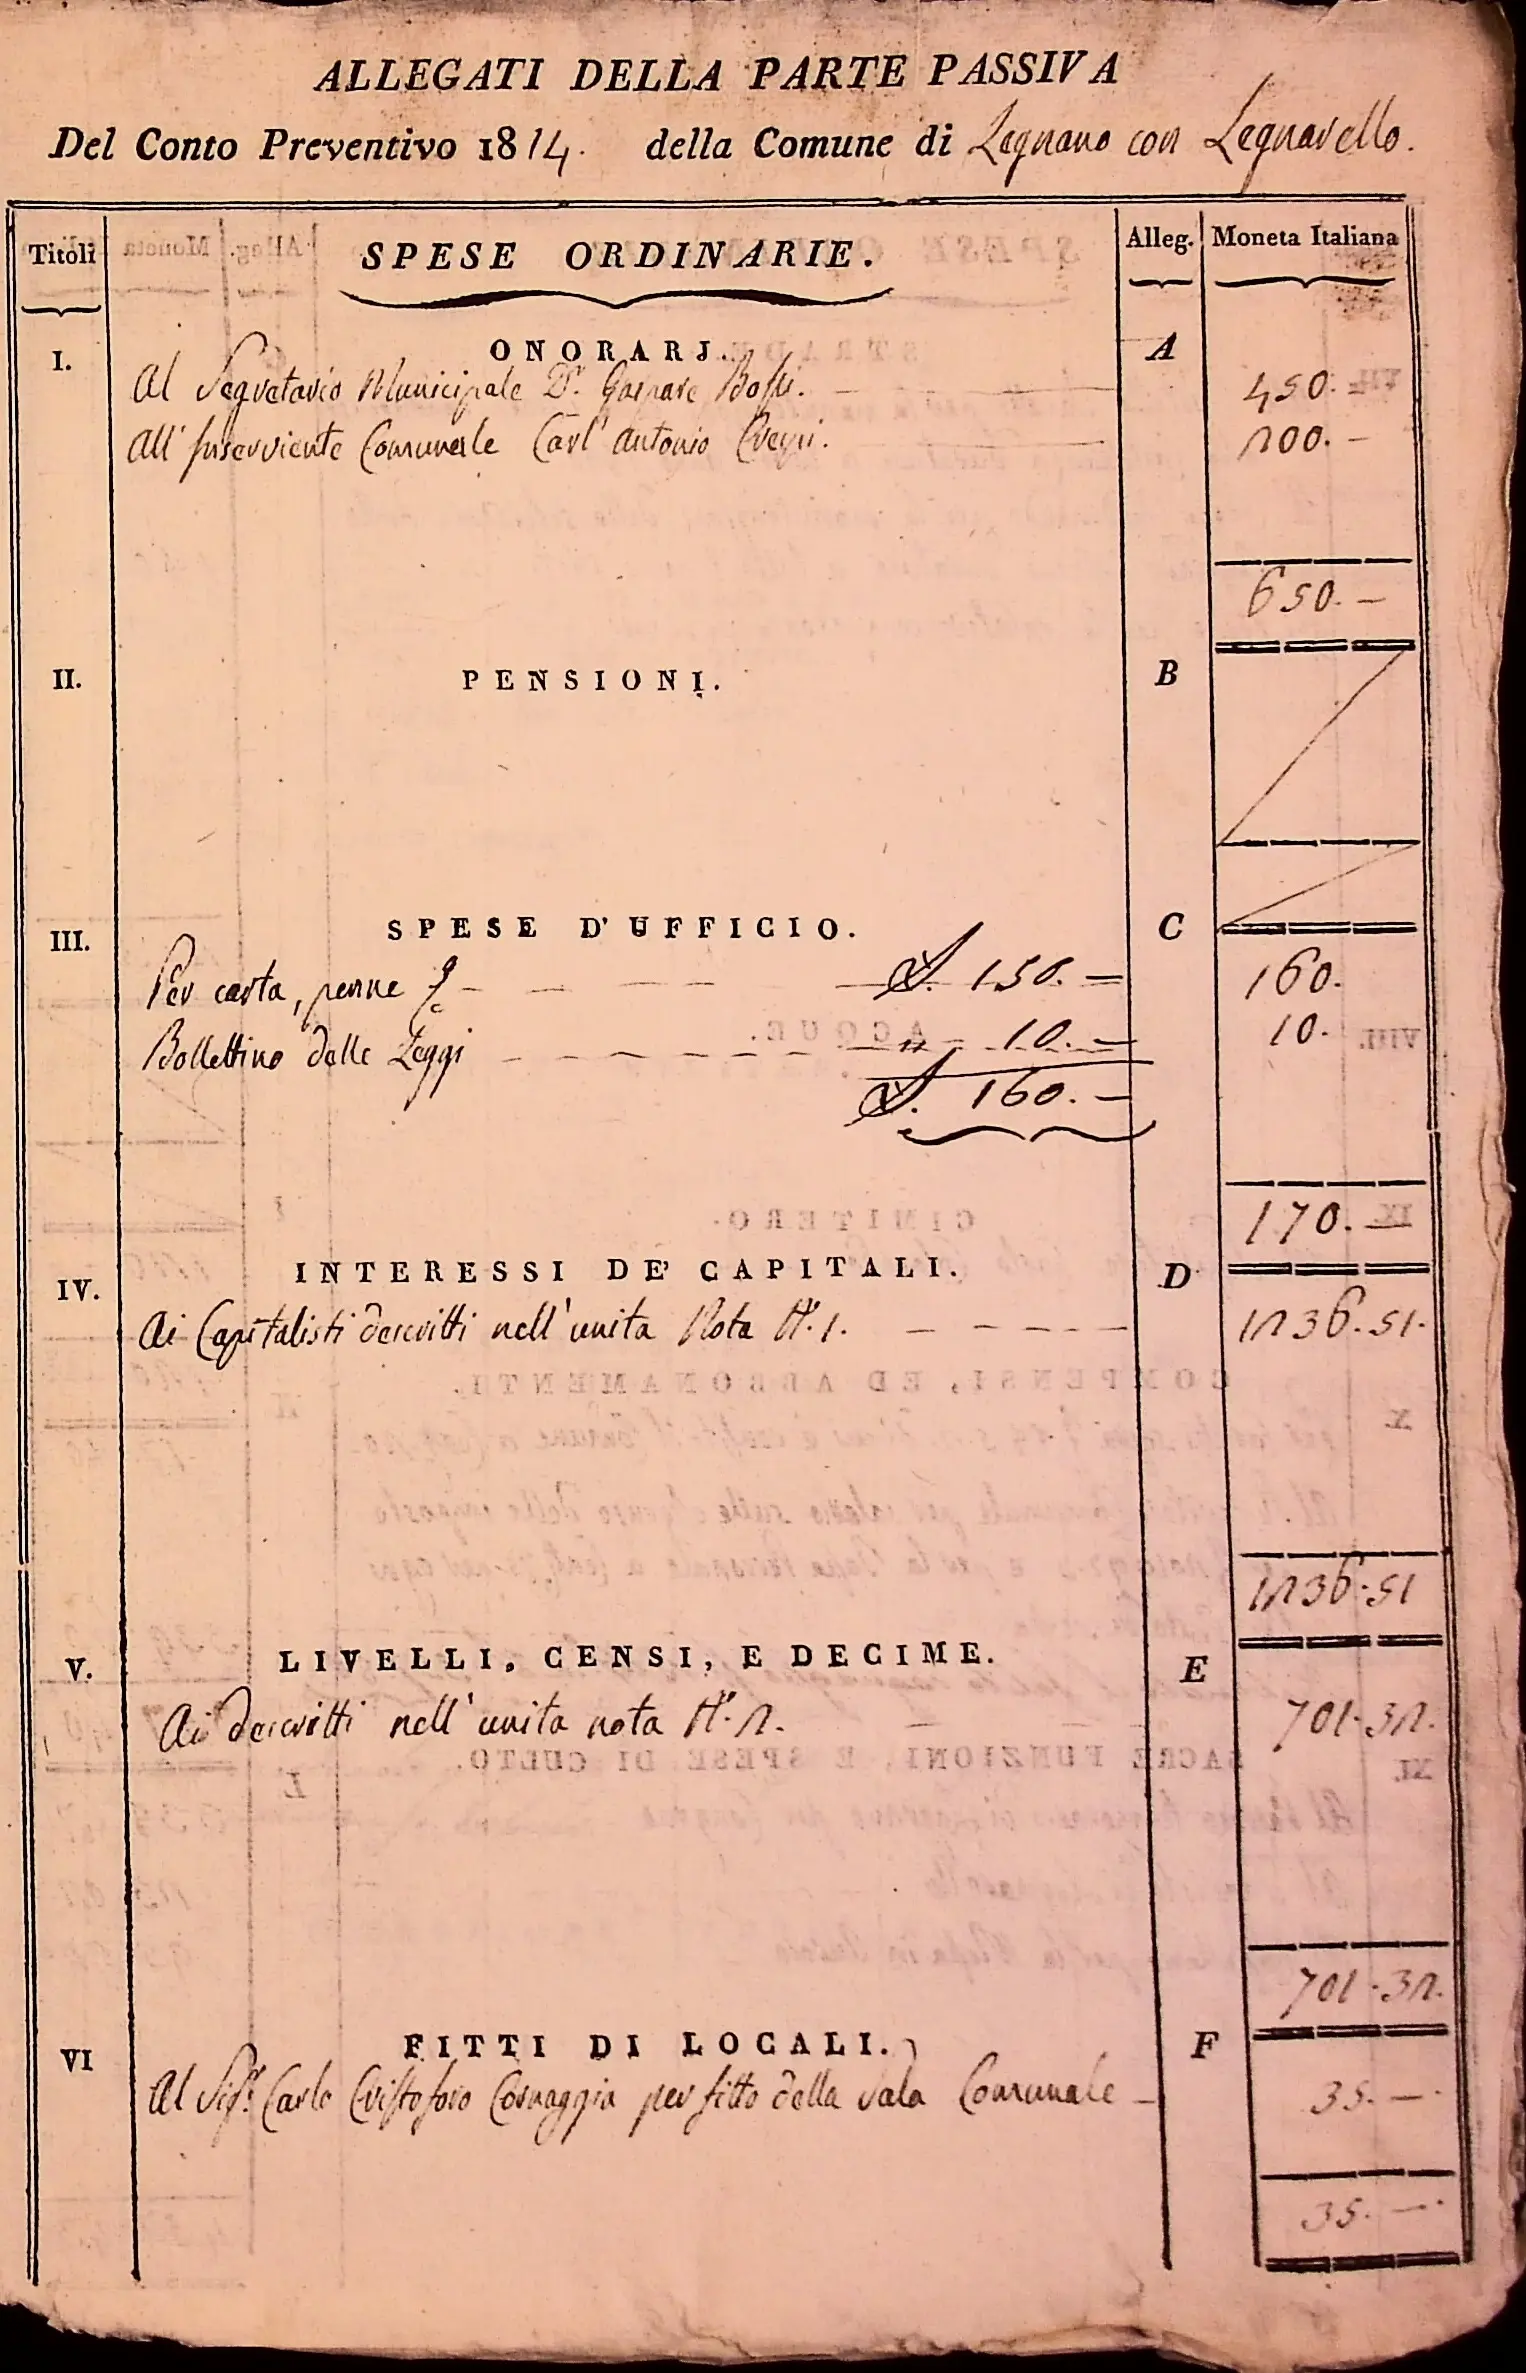 ALLEGATI DELLA PARTE PASSIVA
Del Conto Preventivo 1814. della Comune di Legnano con Legnarello.
Titoli SPESE ORDINARIE. Alleg. Moneta Italiana
I. ONORARJ. A
Al Segretario Municipale Dr. Gaspare Bossi. 450. —
All' Inserviente Comunale Carl' Antonio 200. —
650. —
II. PENSIONI. B
III. SPESE D'UFFICIO. C
Per carta, penne 150. — 160.
Bollettino delle Leggi " 10. — 10.
160. —
170. —
IV. INTERESSI DE' CAPITALI. D
Ai Capitalisti descritti nell' unita Nota N.° 1. 1236. 51.
1236. 51
V. LIVELLI, CENSI, E DECIME. E
Ai descritti nell' unita nota N.° 2. 701. 32.
701. 32.
VI FITTI DI LOCALI. F
Al Sigr. Carlo Cristoforo Cornaggia per fitto della Sala Comunale — 35. —
35. —